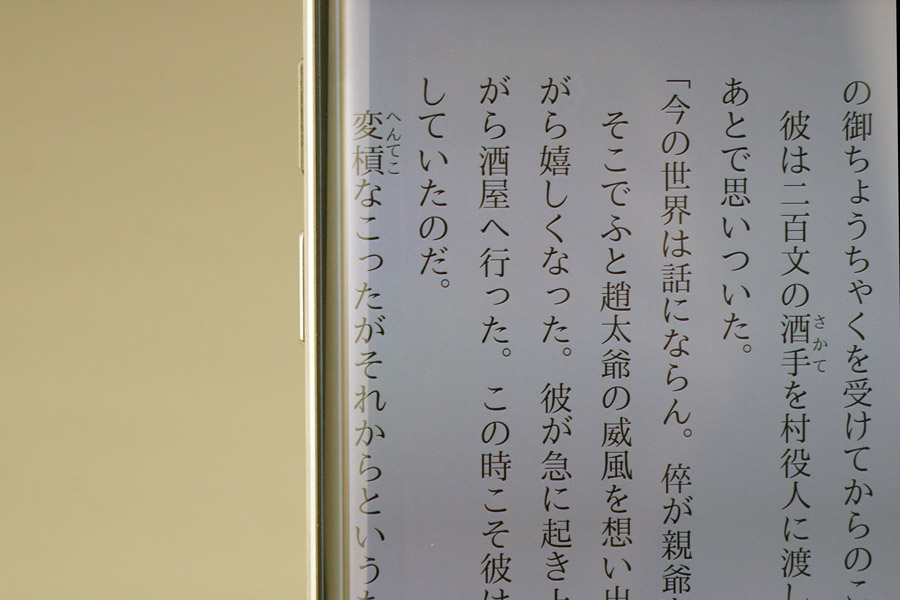 の御ちょうちゃくを受けてからのこ
彼は二百文の酒手を村役人に渡し
さかて
あとで思いついた。
「今の世界は話にならん。倅が親爺
そこでふと趙太爺の威風を想い出
がら嬉しくなった。彼が急に起き上
がら酒屋へ行った。この時こそ彼は
していたのだ。
変槓なこったがそれからという
へんてこ